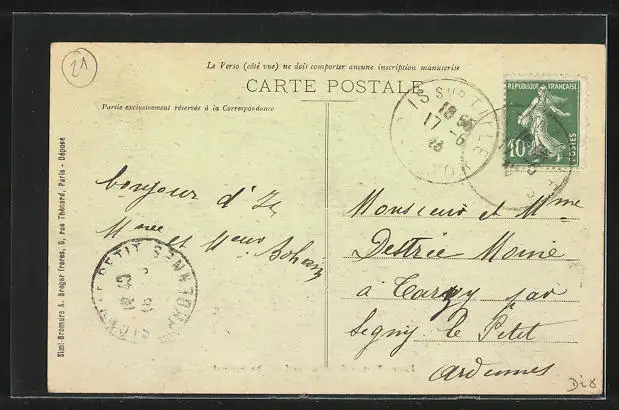 21
Le Verso (côté vue) ne doit comporter aucune inscription manuscrite
CARTE POSTALE
Partie exclusivement réservée à la Correspondance
IS SUR TILLE
18 55
17 - 6
23
RÉPUBLIQUE FRANÇAISE
10c
POSTES
bonjour d'Is
Mme et Meur
Monsieur et Mme
Destrée
à par
Signy le Petit
Ardennes
PETIT
Simi-Bromure A. Breger frères, 9, rue Thénard, Paris - Déposé
Dix